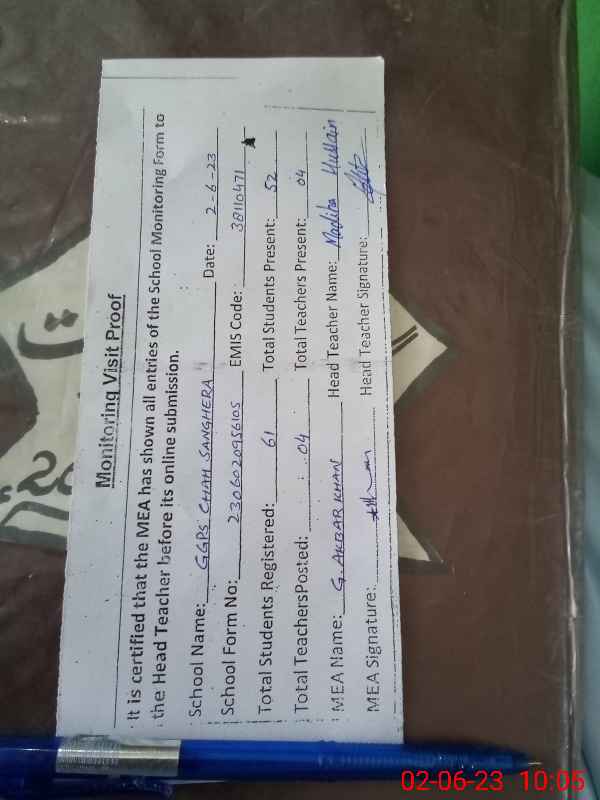 Monitoring Visit Proof
It is certified that the MEA has shown all entries of the School Monitoring Form to
the Head Teacher before its online submission.
School Name: GGPS CHAH SANGHERA Date: 2-6-23
School Form No: 2306020956105 EMIS Code: 38110471
Total Students Registered: 61 Total Students Present: 52
Total TeachersPosted: 04 Total Teachers Present: 04
MEA Name: G. AKBAR KHAN Head Teacher Name: Madiha Hussain
MEA Signature: Head Teacher Signature:
02-06-23 10:05